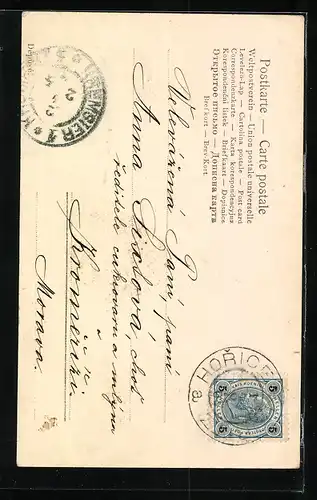 Postkarte — Carte postale
Weltpostverein — Union postale universelle
Levelezö-Lap — Cartolina postale — Post card
Correspondenzkarte — Karta korespondencyjna
Korespondenční lístek — Briefkaart — Dopisnica
Открытое письмо — Дописна карта
Brefkort — Brev-Kort
Deposé.
Velevážná Paní, paní
Anna
ředitele cukrovaru a mlýna
v
Kroměříži.
Morava.
HOŘICE
5 5
5 5